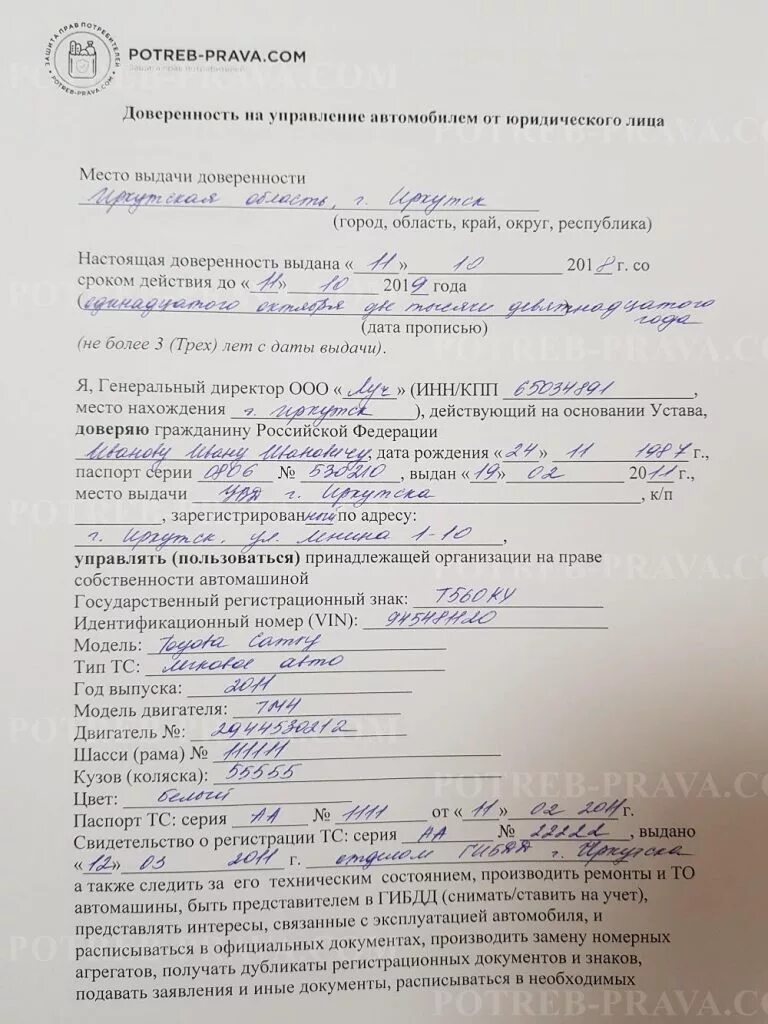 ЗАЩИТА ПРАВ ПОТРЕБИТЕЛЕЙ
POTREB-PRAVA.COM
POTREB-PRAVA.COM
защита прав потребителей
Доверенность на управление автомобилем от юридического лица
Место выдачи доверенности
Иркутская область, г. Иркутск
(город, область, край, округ, республика)
Настоящая доверенность выдана « 11 » 10 2018 г. со
сроком действия до « 11 » 10 2019 года
(единадцатого октября две тысячи девятнадцатого
года
(дата прописью)
(не более 3 (Трех) лет с даты выдачи).
Я, Генеральный директор ООО « Луч » (ИНН/КПП 65034891 ,
место нахождения г. Иркутск ), действующий на основании Устава,
доверяю гражданину Российской Федерации
Иванову Ивану Ивановичу, дата рождения «24» 11 1987 г.,
паспорт серии 0806 № 530210, выдан «19» 02 2011 г.,
место выдачи УВД г. Иркутска , к/п
, зарегистрированный по адресу:
г. Иркутск, ул. Ленина 1-10 ,
управлять (пользоваться) принадлежащей организации на праве
собственности автомашиной
Государственный регистрационный знак: Т560КУ
Идентификационный номер (VIN):
Модель: Toyota Camry
Тип ТС: легковое авто
Год выпуска: 2011
Модель двигателя: 7М4
Двигатель №: 2944530212
Шасси (рама) № 111111
Кузов (коляска): 55555
Цвет: белый
Паспорт ТС: серия АА № 1111 от « 11 » 02 2011г.
Свидетельство о регистрации ТС: серия АА № 22222 , выдано
«12» 03 2011 г. отделом ГИБДД г. Иркутска
а также следить за его техническим состоянием, производить ремонты и ТО
автомашины, быть представителем в ГИБДД (снимать/ставить на учет),
представлять интересы, связанные с эксплуатацией автомобиля, и
расписываться в официальных документах, производить замену номерных
агрегатов, получать дубликаты регистрационных документов и знаков,
подавать заявления и иные документы, расписываться в необходимых